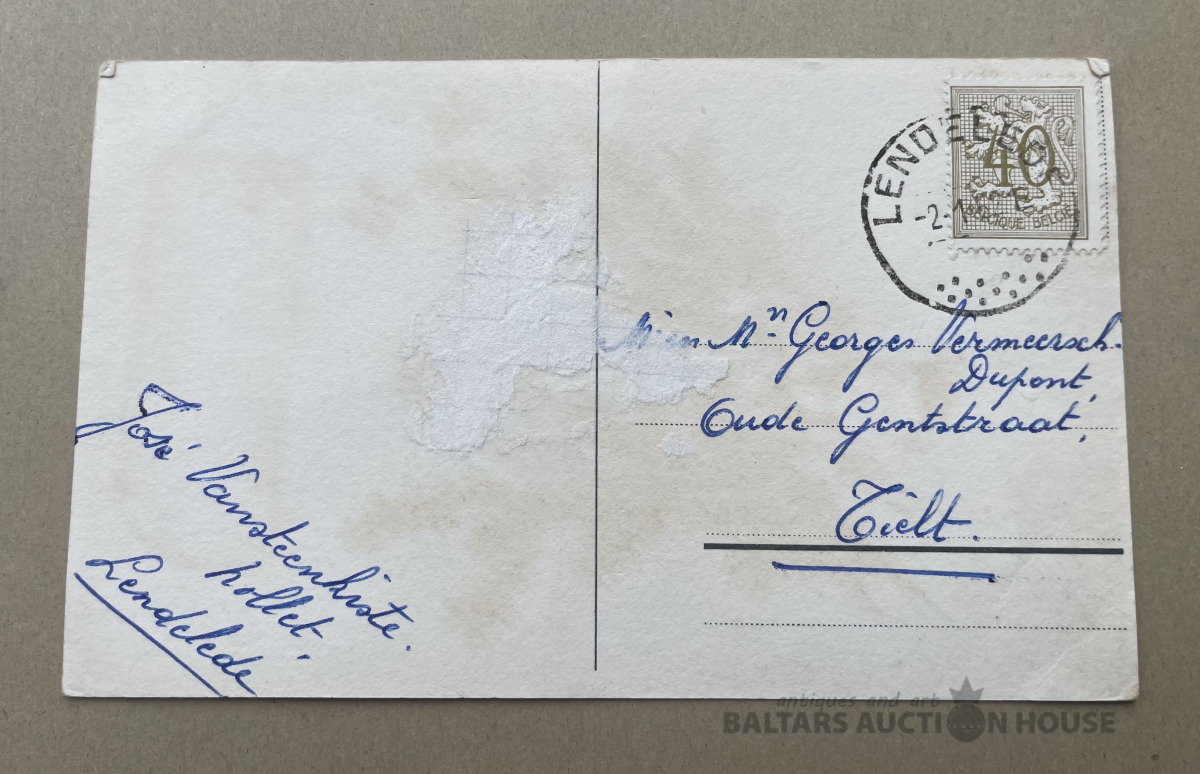 José Vansteenkiste.
hollet.
Lendelede
LENDELEDE
-2.-1
40
BELGIQUE BELGIE
Mr en Mn Georges Vermeersch.
Dupont,
Oude Gentstraat,
Tielt.
antiques and art
BALTARS AUCTION HOUSE